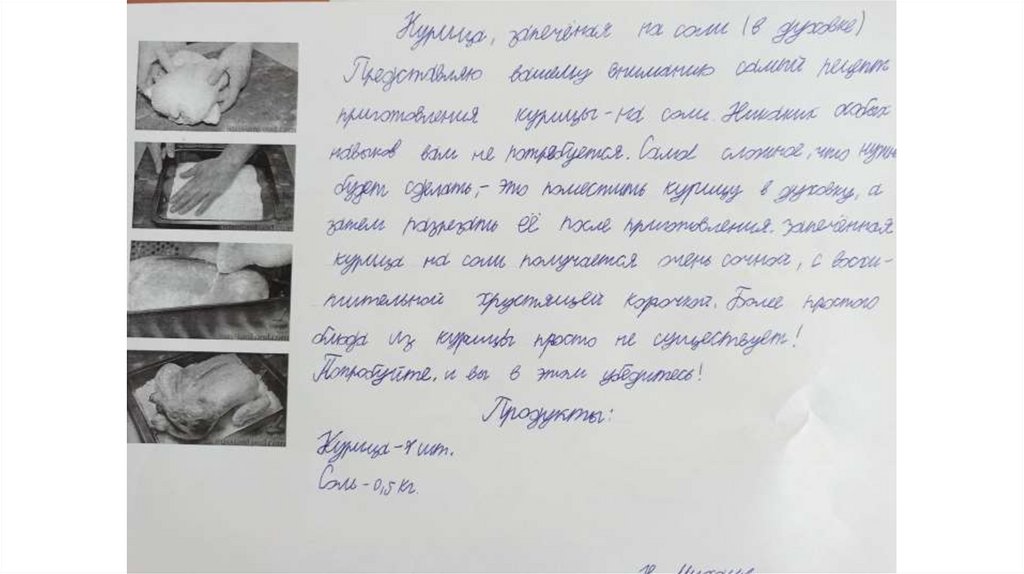 Курица, запечёная на соли (в духовке)
Представляю вашему вниманию самый рецепт
приготовления курицы - на соли. Никаких особых
навыков вам не потребуется. Самое сложное, что нужно
будет сделать, - это поместить курицу в духовку, а
затем разрезать её после приготовления. Запечённая
курица на соли получается очень сочной, с восхи-
тительной хрустящей корочкой. Более простого
блюда из курицы просто не существует!
Попробуйте, и вы в этом убедитесь!
Продукты:
Курица - 1 шт.
Соль - 0,5 кг.